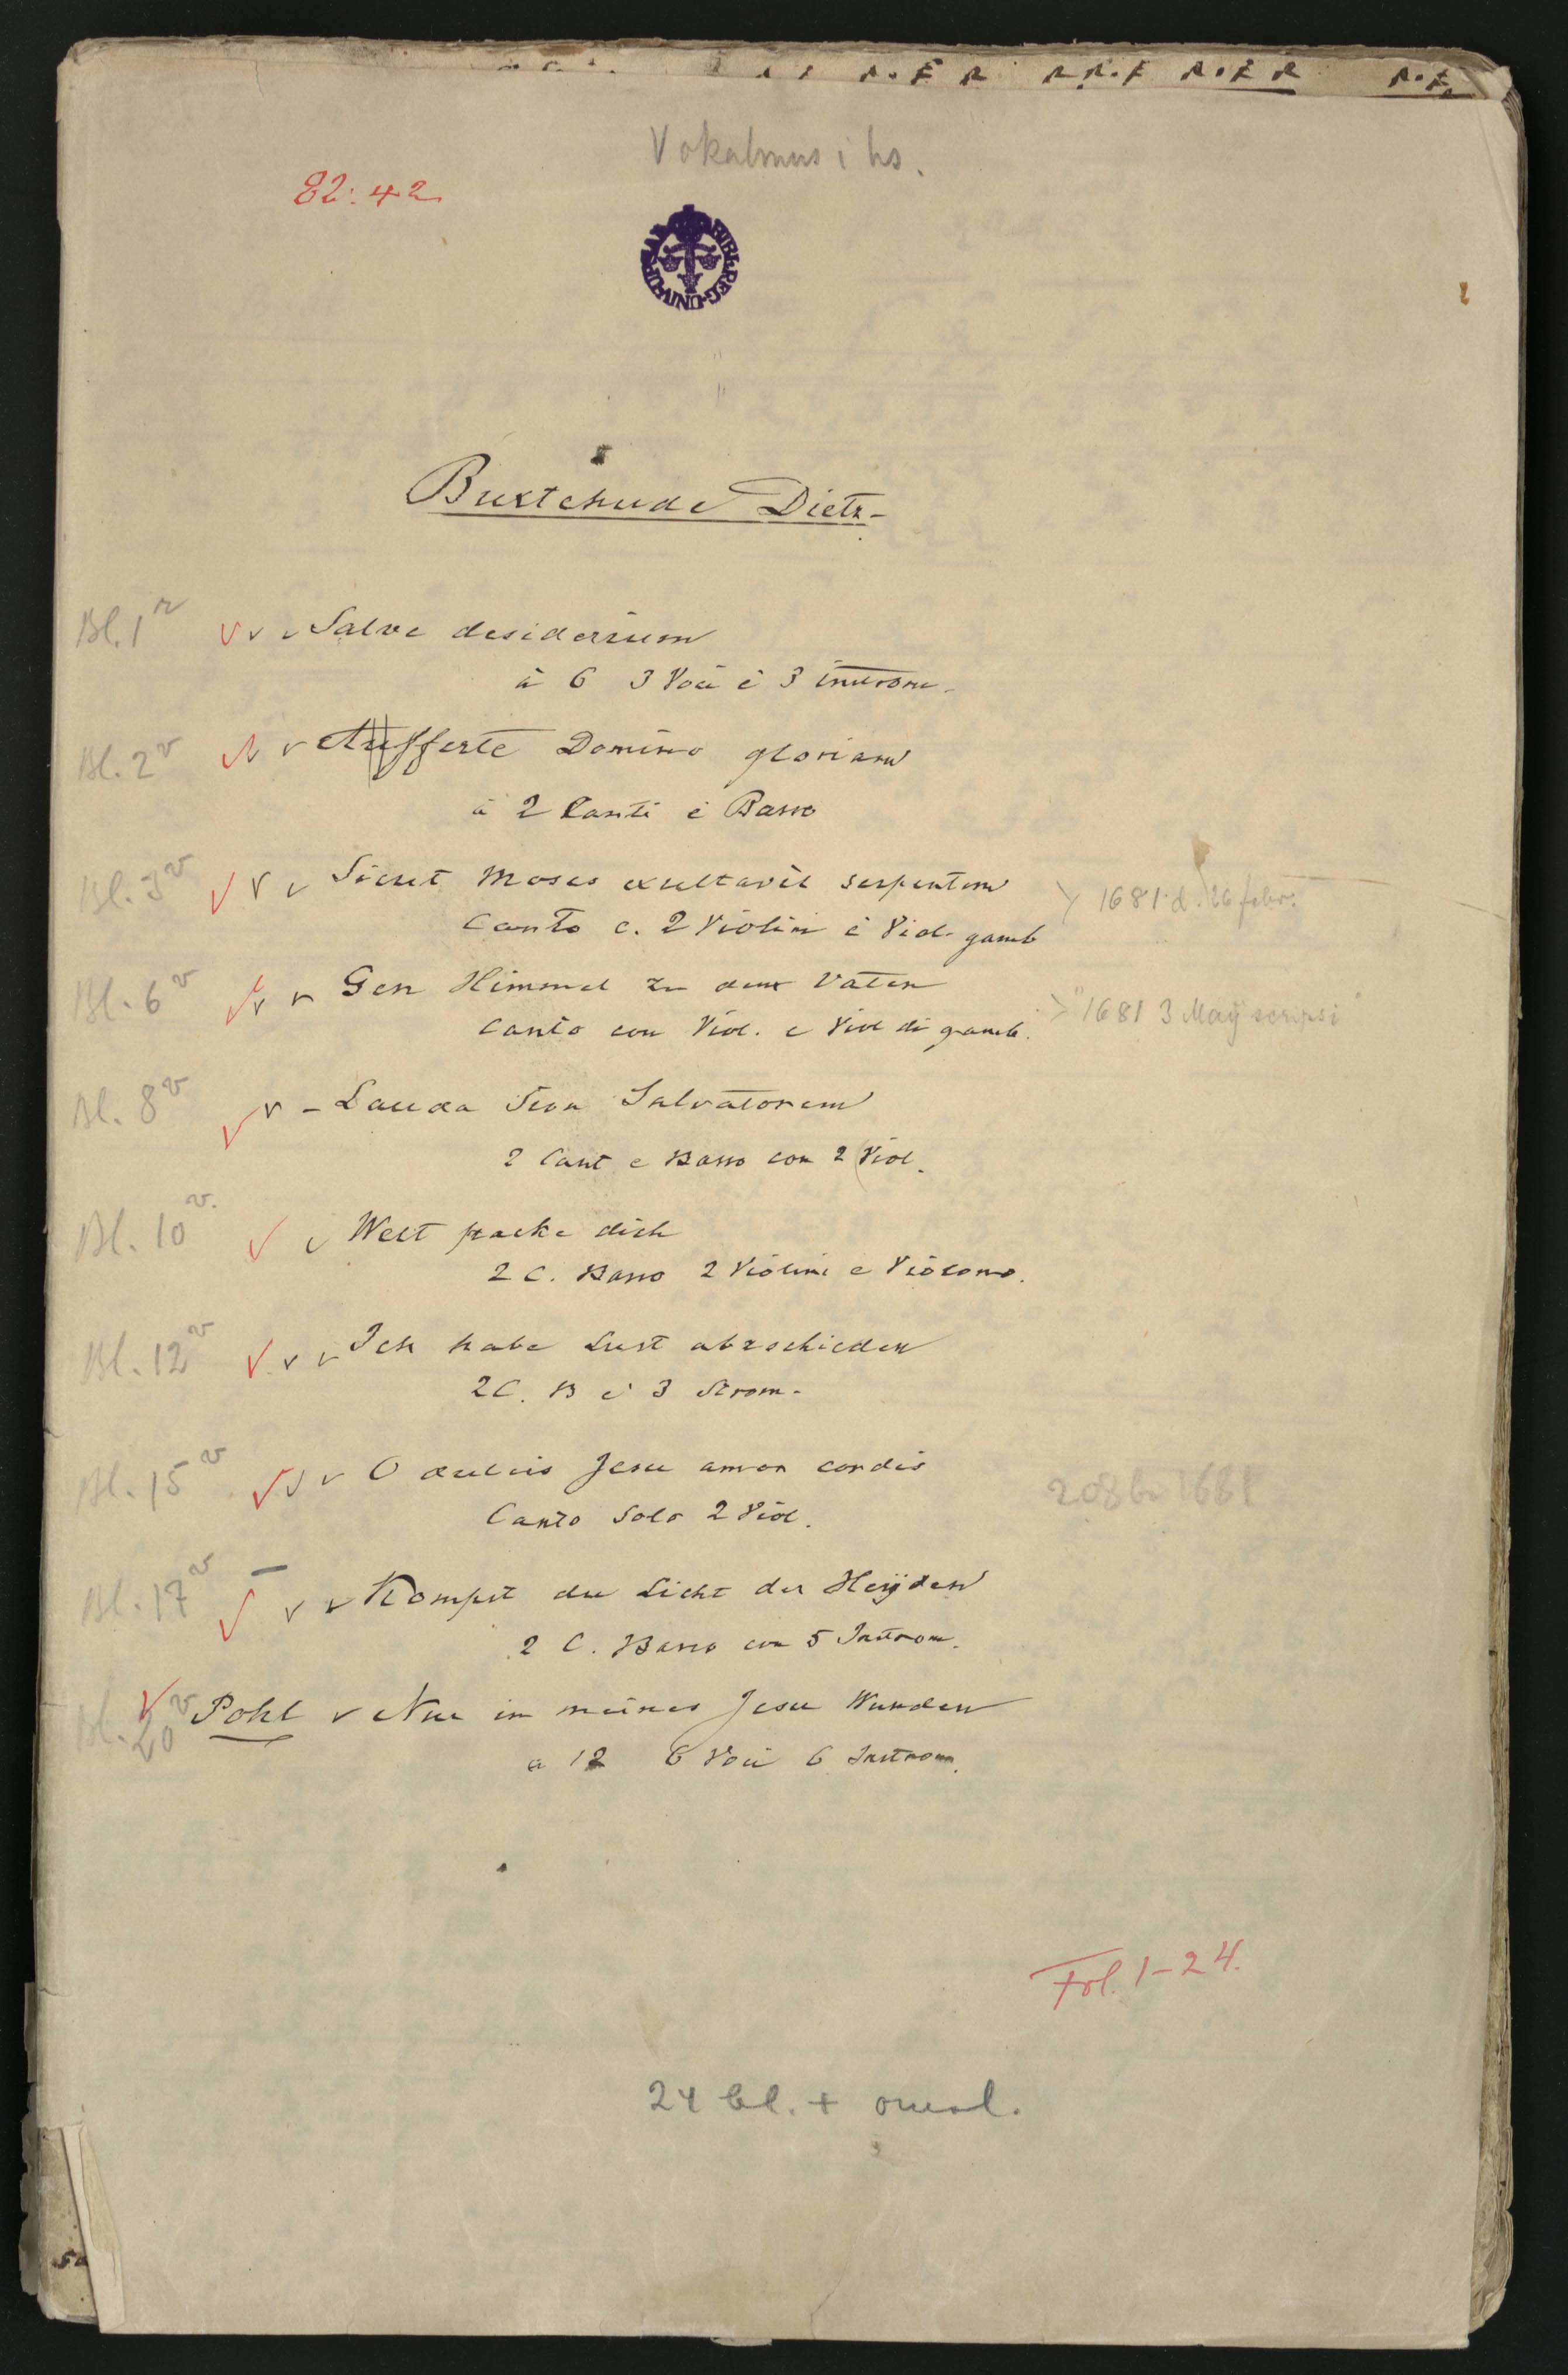 Vokalmus i hs.
82:42
BIBL. REG. UNIV. UPSAL
Buxtehude Dietr.
Bl. 1r Salve desiderium
à 6 3 Voci è 3 Instrom.
Bl. 2v Aufferte Domino gloriam
à 2 Canti è Basso
Bl. 3v Sicut Moses exultavit serpentem
Canto c. 2 Violin è Viol. gamb
1681 d. 26 febr.
Bl. 6v Gen Himmel zu dem Vater
Canto con Viol. e Viol di gamb.
"1681 3 Maÿ scripsi"
Bl. 8v Lauda Sion Salvatorem
2 Cant e Basso con 2 Viol.
Bl. 10v. Welt packe dich
2 C. Basso 2 Violini e Violono.
Bl. 12v Ich habe Lust abzschieden
2 C. B è 3 Strom.
Bl. 15v O dulcis Jesu amor cordis
Canto Solo 2 Viol.
208br 1681
Bl. 17v Kompst du Licht der Heÿden
2 C. Basso con 5 Instrom.
Bl. 20v Pohl Nur in meines Jesu Wunden
a 12 6 Voci 6 Instrom.
Fol. 1-24.
24 bl. + omsl.